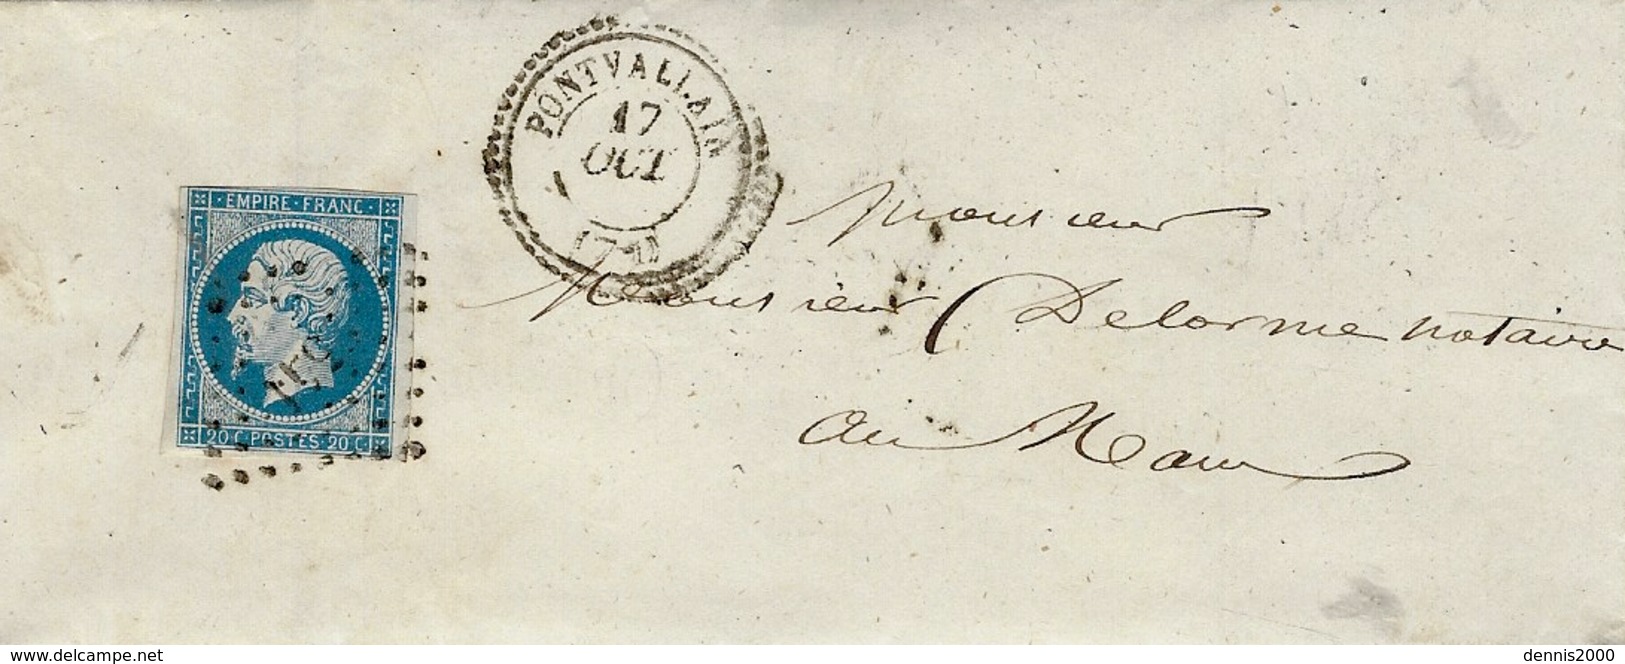 PONTVALLAIN
17
OCT
(71)
EMPIRE · FRANC ·
20 C · POSTES · 20 C
Monsieur
Monsieur Delorme notaire
au Mans
www.delcampe.net
dennis2000